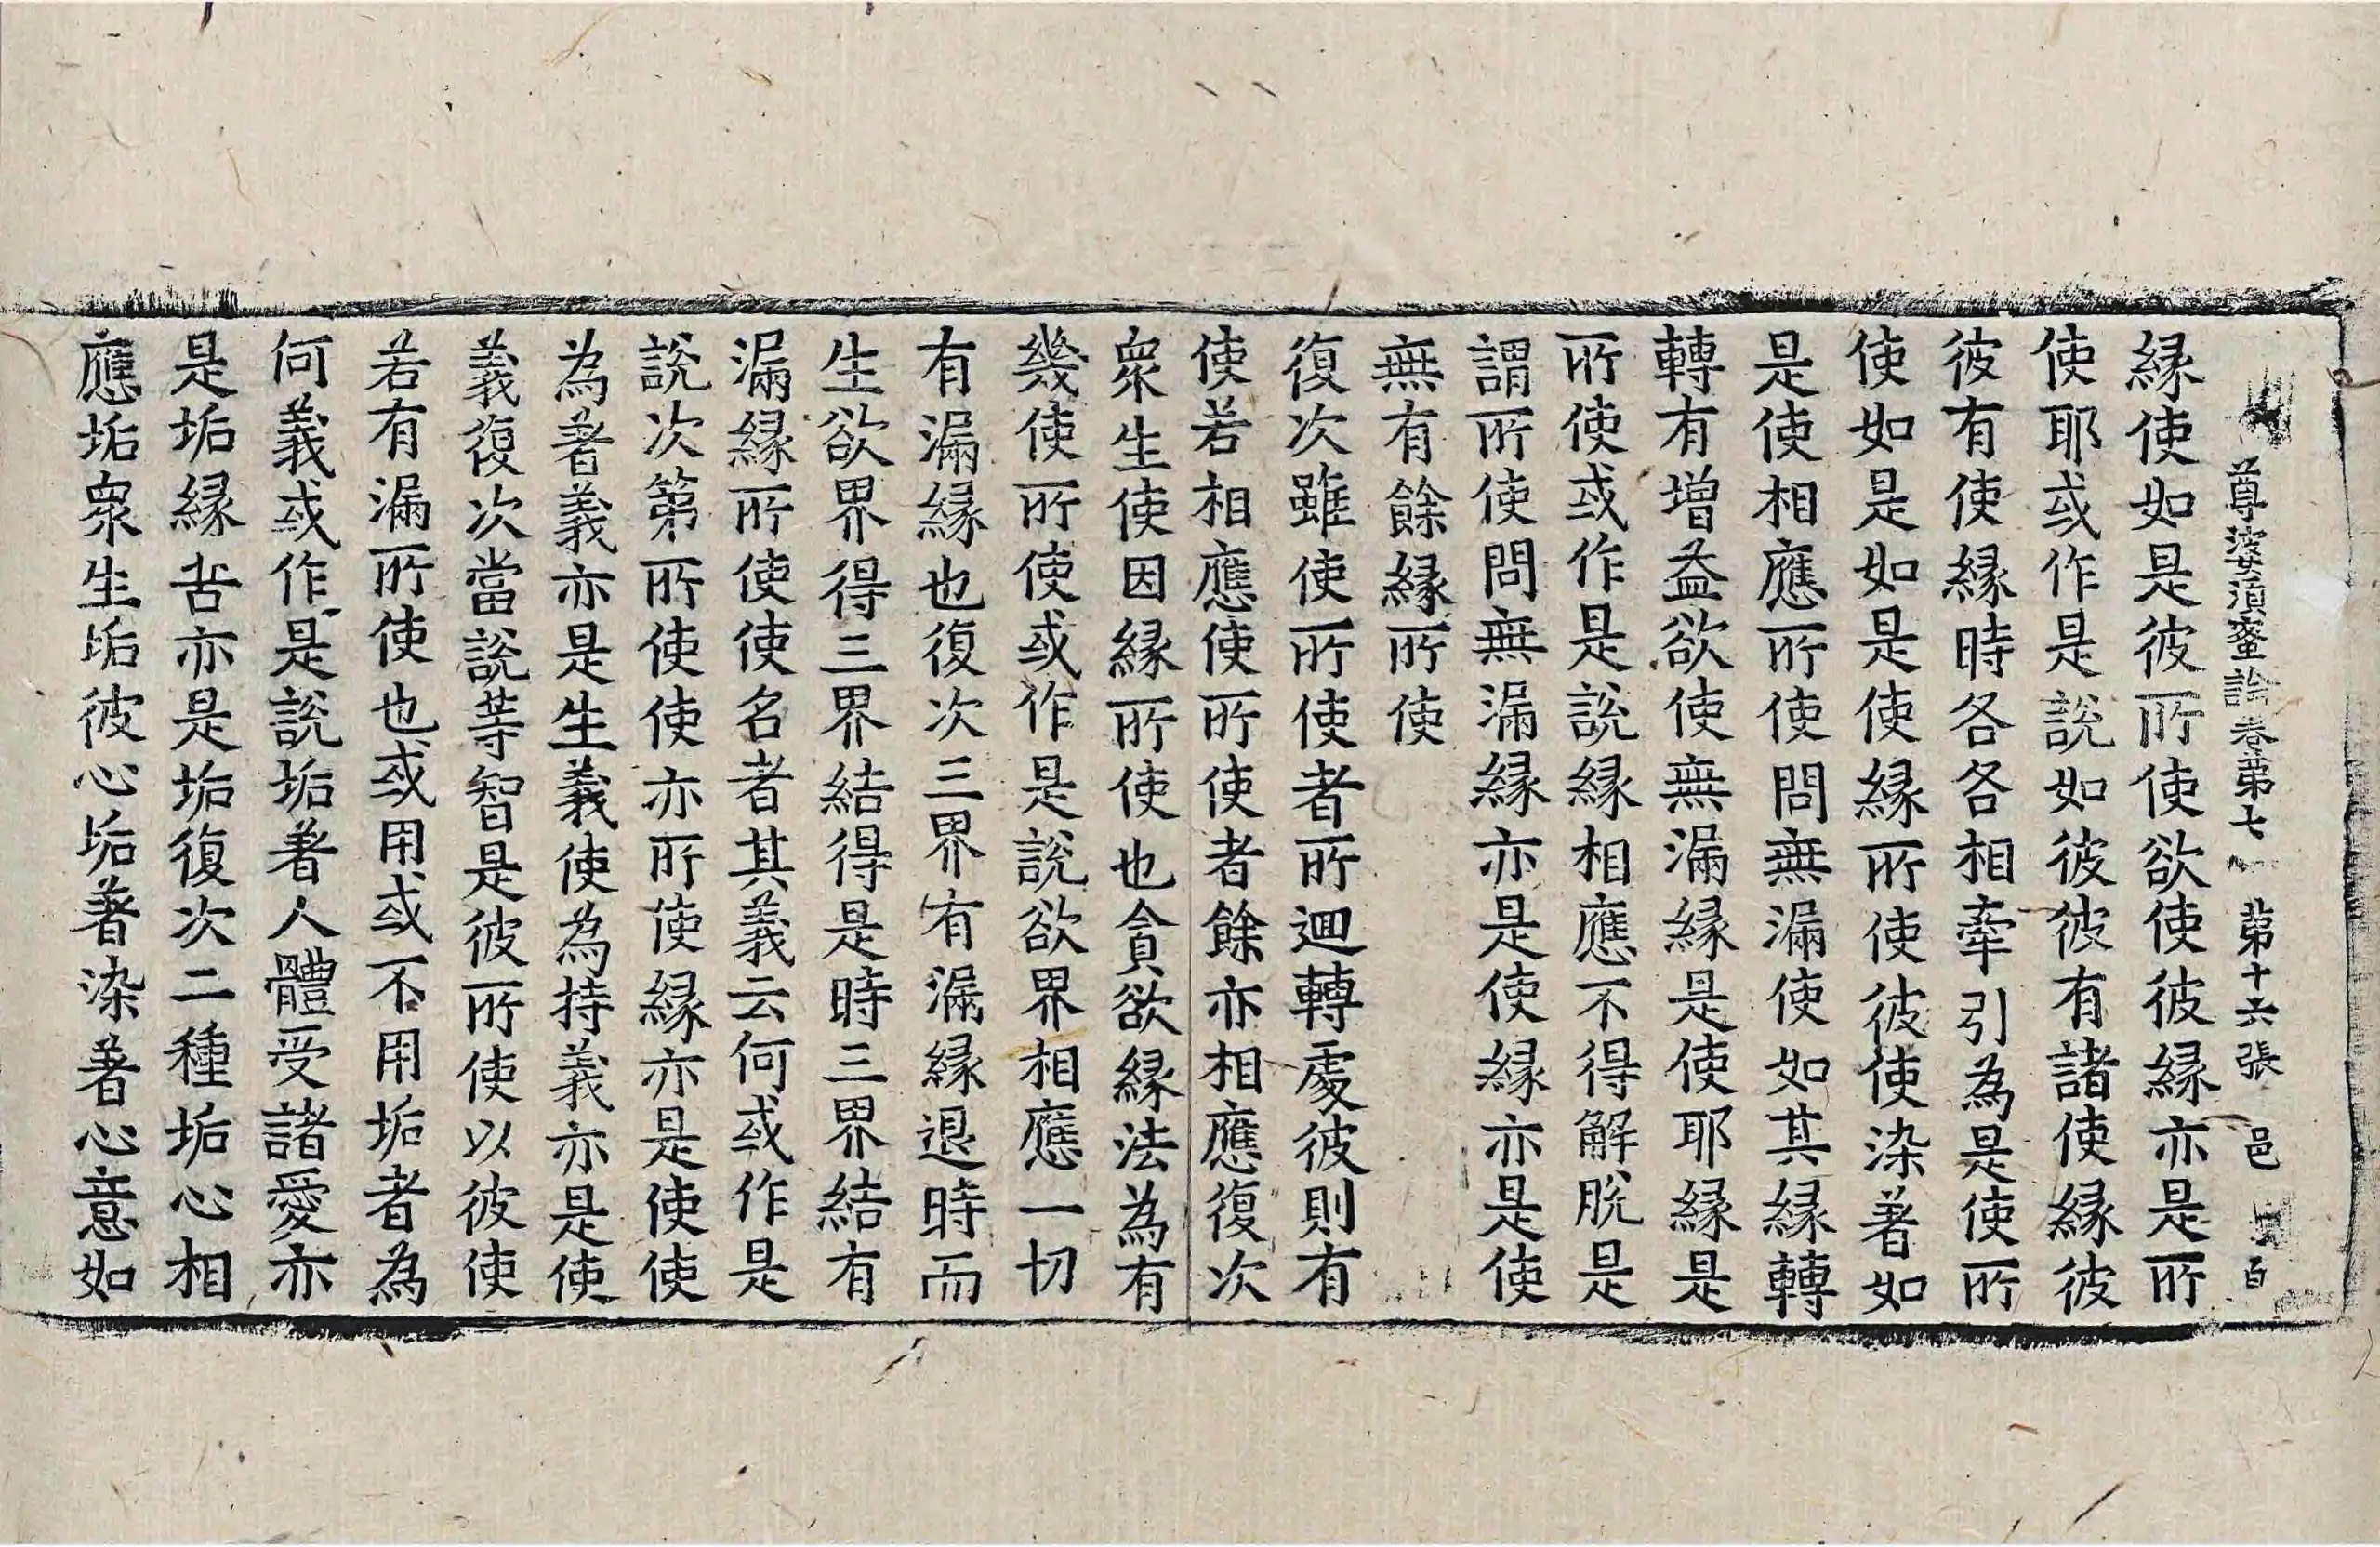 尊婆須蜜論卷第七 第十六張 邑
縁使如是彼所使欲使彼縁亦是所
使耶或作是說如彼彼有諸使縁彼
彼有使縁時各各相牽引為是使所
使如是如是使縁所使彼使染著如
是使相應所使問無漏使如其縁轉
轉有增益欲使無漏縁是使耶縁是
所使或作是說縁相應不得解脫是
謂所使問無漏縁亦是使縁亦是使
無有餘縁所使
復次雖使所使者所迴轉處彼則有
使若相應使所使者餘亦相應復次
衆生使因縁所使也貪欲縁法為有
幾使所使或作是說欲界相應一切
有漏縁也復次三界有漏縁退時而
生欲界得三界結得是時三界結有
漏縁所使使名者其義云何或作是
說次第所使使亦所使縁亦是使使
為著義亦是生義使為持義亦是使
義復次當說等智是彼所使以彼使
若有漏所使也或用或不用垢者為
何義或作是說垢著人體受諸愛亦
是垢縁苦亦是垢復次二種垢心相
應垢衆生垢彼心垢著染著心意如